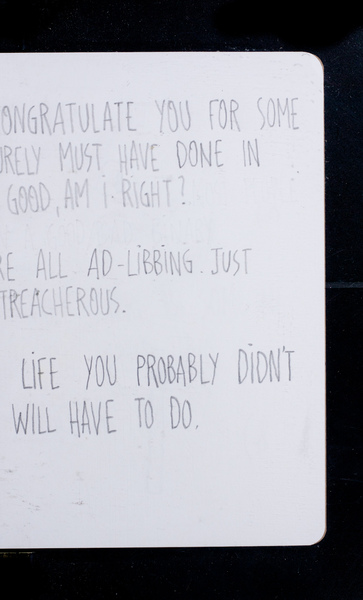 ONGRATULATE YOU FOR SOME
URELY MUST HAVE DONE IN
GOOD, AM i RiGHT?
RE ALL AD-LiBBiNG. JUST
TREACHEROUS.
LiFE YOU PROBABLY DiDN'T
WiLL HAVE TO DO.